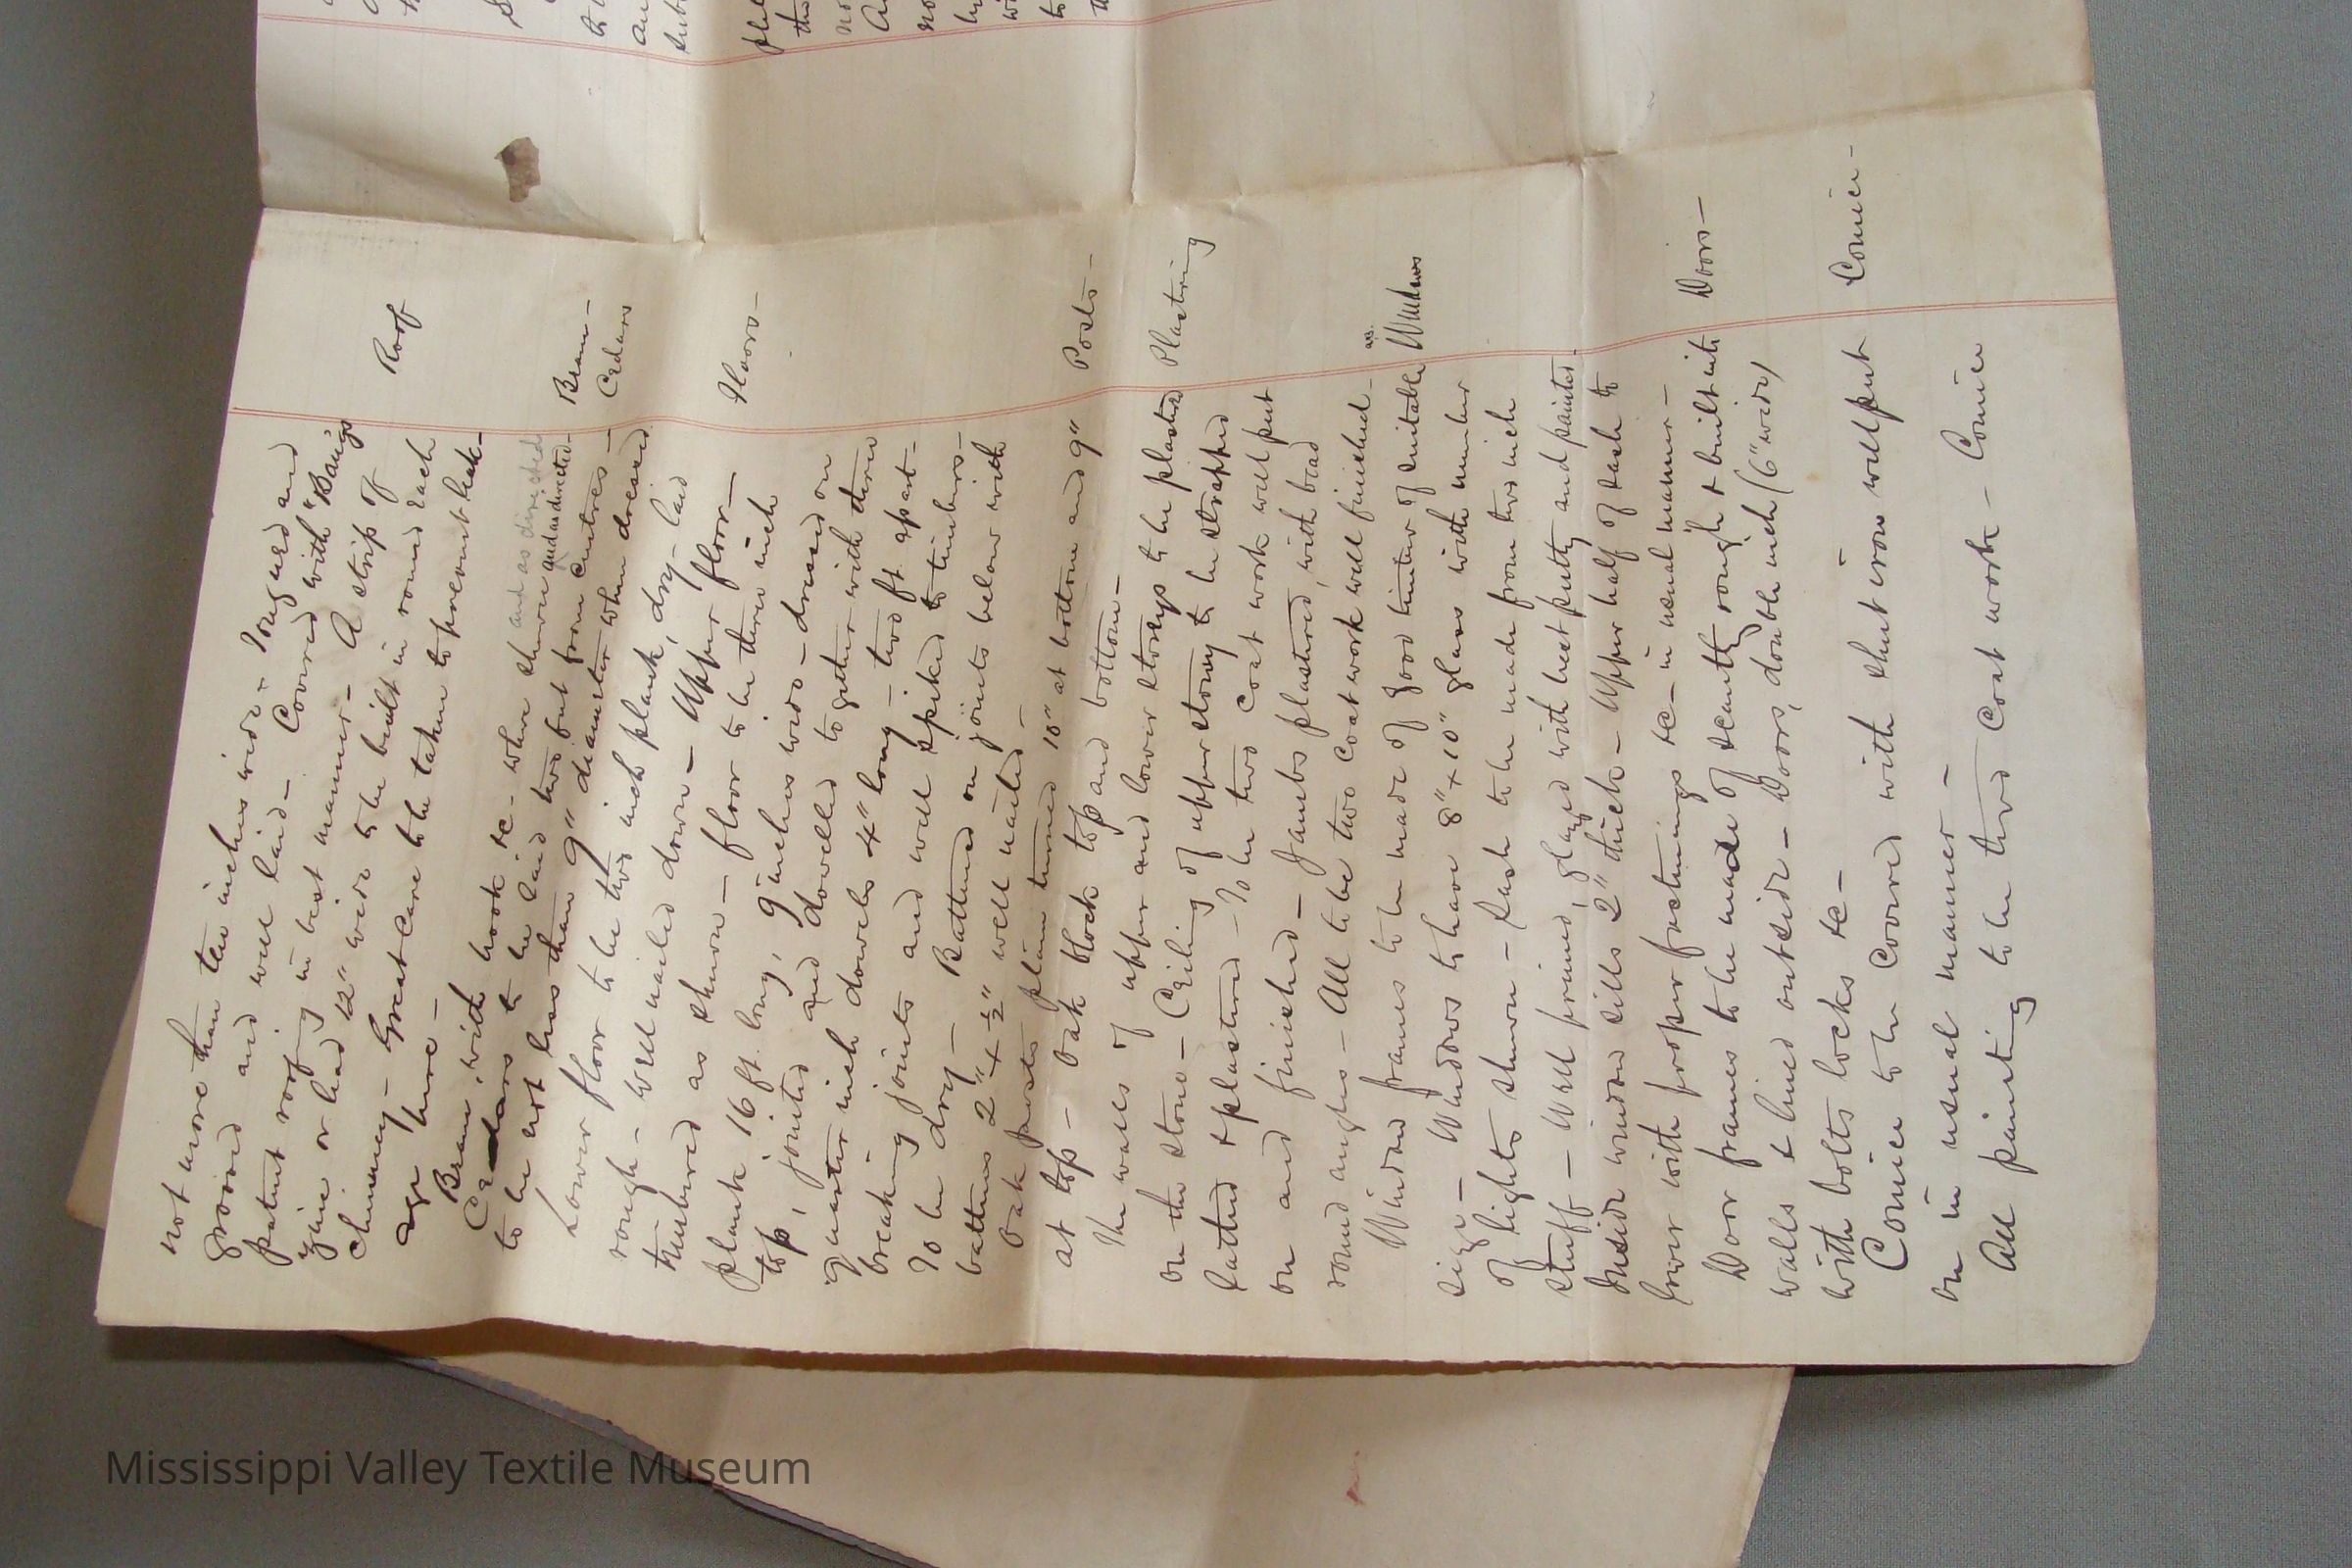 not more than ten inches wide - Tongued and
grooved and well laid - Covered with "Baings
patent roofing in best manner - A strip of
zinc or lead 12" wide to be built in round each
chimney - Great care to be taken to prevent leak-
age here -
Roof
Beam, with hook &c - where shown and as directed
and as directed -
Beam -
Cedars to be laid two feet from centres -
to be not less than 9" diameter when dressed
Cedars
Lower floor to be two inch plank, dry - laid
rough - well nailed down - Upper floor -
timbered as shown - floor to be three inch
plank 16 ft. long, 9 inches wide - dressed on
top, jointed and dowelled together with three
quarter inch dowels 4" long - two ft apart -
breaking joints and well spiked to timbers -
To be dry - Battened on joints below with
battens 2" x ½" well nailed -
Floors -
Oak posts plain turned 10" at bottom and 9"
at top - Oak block top and bottom -
Posts -
The walls of upper and lower storeys to be plastered
on the stone - Ceiling of upper storey to be strapped
latted & plastered - To be two coat work well put
on and finished - Jambs plastered, with bead
round angles - All to be two coat work well finished -
Plastring
Window frames to be made of good timber of suitable
size - Windows to have 8" x 10" glass with number
of lights shown - Sash to be made from two inch
stuff - Well primed, glazed with best putty and painted
Inside window sills 2" thick - Upper half of sash to
lower with proper fastenings &c - in usual manner -
as.
Windows
Door frames to be made of scantling rough & built into
walls & lined outside - Doors, double inch (6" wide)
with bolts locks &c -
Doors -
Cornice to be covered with sheet iron well put
on in usual manner -
Cornice -
All painting to be two coat work - Cornice
Mississippi Valley Textile Museum